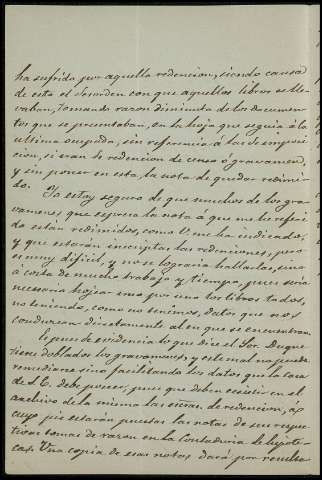 ha sufrido por aquella redencion, siendo causa
de esta el desorden con que aquellos libros se lle-
vaban, tomando razon diminuta de los documen-
tos que se presentaban, en la hoja que seguia á la
ultima ocupada, sin referencia á la de imposi-
cion, si eran de redencion de censo o gravamen,
y sin poner en esta, la nota de quedar redimi-
do.
Yo estoy seguro de que muchos de los gra-
vamenes, que espresa la nota á que me he referi-
do estan redimidos, como V. me ha indicado,
y que estarán inscriptas las redenciones, pero
es muy dificil, y no se lograria hallarlas, sino
á costa de mucho trabajo y tiempo, pues seria
necesario hojear uno por uno los libros todos,
no teniendo, como no tenemos, datos que nos
conduzcan directamente al en que se encuentran.
Se pues de evidencia lo que dice el Sor. Duque
tiene doblados los gravamenes, y este mal no puede
remediarse sino facilitando los datos que la Casa
de S. E. debe poseer, pues que deben ecsistir en el
archivo de la misma las escrras. de redencion, á
cuyo pie estarán puestas las notas de sus respec-
tivas tomas de razon en la Contaduria de hipote-
cas. Una copia de esas notas dará por resulta